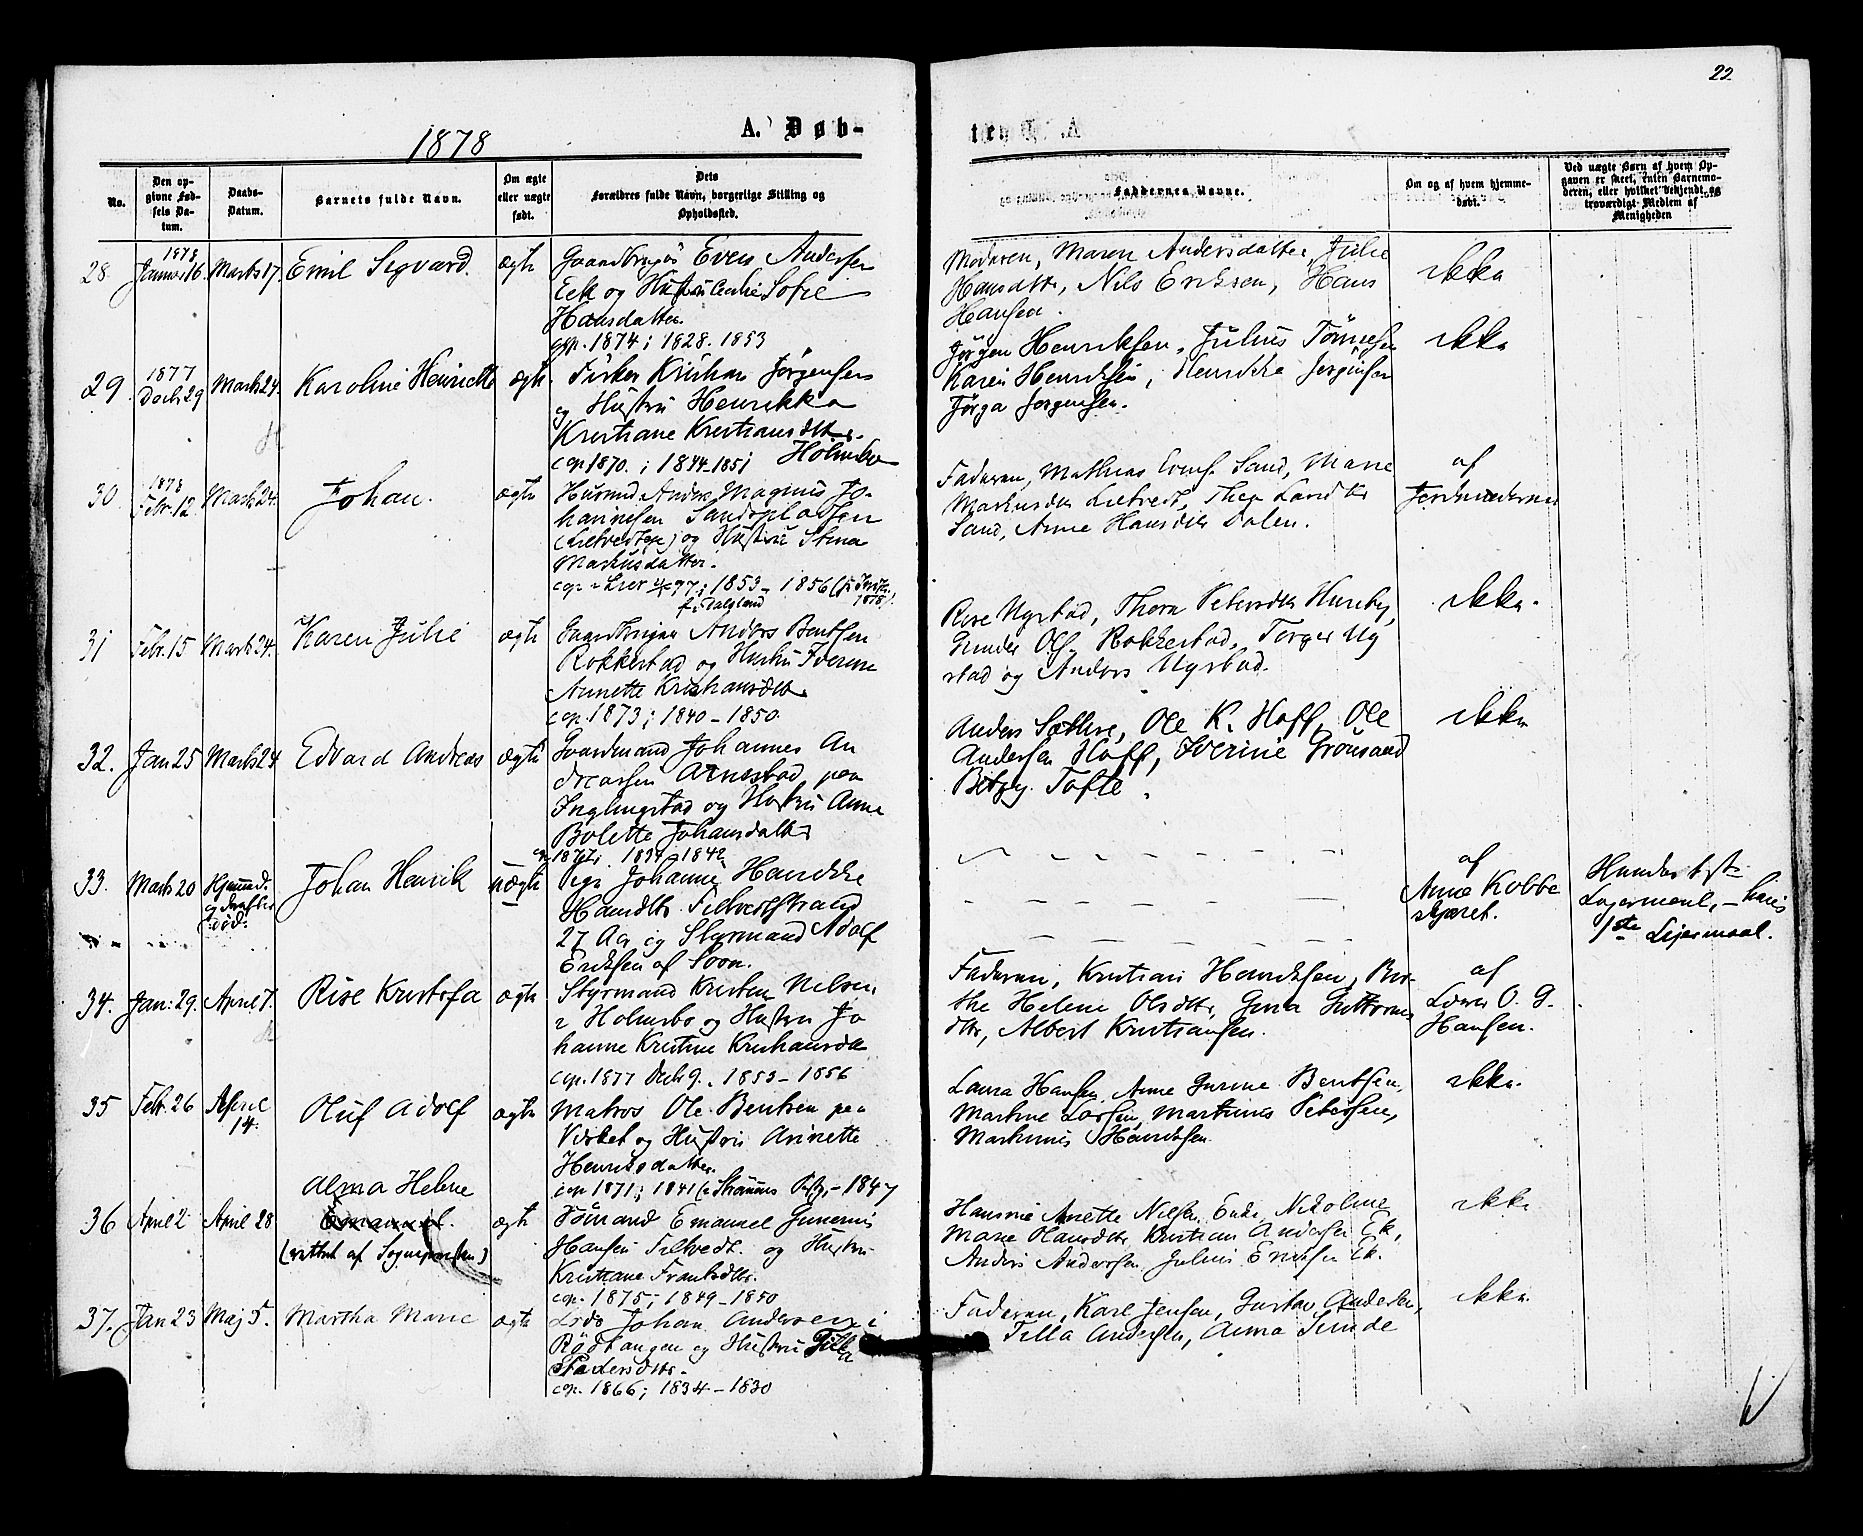 22.
1878
A. Døb-
No.
Den op-
givne Fød-
sels Da-
tum.
Daabs-
Datum.
Barnets fulde Navn.
Om ægte
eller uægte
født.
Dets
Forældres fulde Navn, borgerlige Stilling og
Opholdssted.
Faddernes Navne.
Om og af hvem hjemme-
døbt.
Ved uægte Børn af hvem Op-
gaven er skeet, enten Barnemo-
deren, eller hvilket bekjendt og
troværdigt Medlem af
Menigheden
28. 1878 Januar 16 Marts 17. Emil Segvard. ægte
Gaardbruger Even Andersen
Eek og Hustru Sofie
Hansdatter.
1874; 1828. 1853
Moderen, Maren Andersdatter, Julie
Hansdtr, Nils Eriksen, Hans
Hansen.
ikke
29. 1877 Decb. 29 Marts 24. Karoline Henriette ægte.
Fisker Kristian Jørgensen
og Hustru Henrikke
Kristiane Kristiansdtr.
cop. 1870.; 1844-1851 Holmsbo
Jørgen Henriksen, Julius Tönnesen
Karen Henriksen, Henrikke Jørgensen
Jørga Jørgensen.
ikke
30. 1878 Febr. 12. Marts 24. Johan. ægte
Husmd. Anders Magnus Jo-
hannesen Sandspladsen
og Hustru Stina
Markusdatter.
77; 1853 - 1856
f. i Dalsland
Faderen, Mathias Sand, Marie
Markusdtr
Sand, Anne Hansdtr Dalen.
af
Jordmoderen
31 Febr. 15 Marts 24. Karen Julie ægte
Gaardbruger Anders Bentsen
Rokkestad og Hustru Iverine
Annette Kristiansdtr
cop. 1873; 1840 - 1850.
Nystad, Thora Petersdtr Huseby,
Gunder Ols. Rokkestad, Torger Ny
stad og Anders Nystad.
ikke.
32. Jan 25 Marts 24 Edvard Andreas ægte
Gaardmand Johannes An
dreassen Arnestad, paa
Inglingstad og Hustru Anne
Bolette Johansdatter
1877; 1842
Anders Sæthre, Ole K. Hoff, Ole
Andersen Hoff, Iverine Grønsand
Betzy Tofte.
ikke
33. Marts 20 Hjemmd.
og derefter
död. Johan Henrik uægte
Pige Johanne Henrikke
Hansdtr. Filtvedtstrand
27 Aar og Styrmand Adolf
Eriksen af Soon.
af
Anne Kobbe
skjæret.
Hendes 1ste
Lejermaal, - hans
1ste Lejermaal.
34. Jan: 29. April 7. Rise Kristofa ægte
Styrmand Kristen Nilsen
i Holmsbo og Hustru Jo
hanne Kristine Kristiansdtr
cop. 1877 Decb 9., 1853 - 1856
Faderen, Kristian Henriksen, Ber-
the Helene Olsdtr, Gina Guttorms
dtr, Albert Kristiansen.
af
Lærer O. G.
Hansen.
35 Febr. 26 April
14. Oluf Adolf ægte
Matros Ole Bentsen paa
Værket og Hustru Annette
Henriksdatter.
cop 1871; 1841 - 1847
Laura Hansen, Anne Gurine Bentsen,
Martine Larsen, Martinus Petersen,
Markinus Henriksen.
ikke.
36 April 2 April 28 Alma Helene
Emanuel.
(rettet af Sognepræsten) ægte
Tömand Emanuel Gunerius
Hansen Filtvedt. og Hustru
Kristiane Frantsdtr.
cop. 1875; 1849 - 1850
Hansine Anette Nilsen, Nikoline
Marie Hansdtr Kristian Andersen Ek,
Anders Andersen, Julius Eriksen Ek.
ikke
37. Jan 23 Maj 5. Martha Marie ægte
Lods Johan Andersen i
Rödtangen og Hustru Tilla
Pedersdtr.
cop. 1866; 1834 - 1830
Faderen, Karl Jensen, Gustav Andersen,
Tilla Andersen, Anna Sunde
ikke